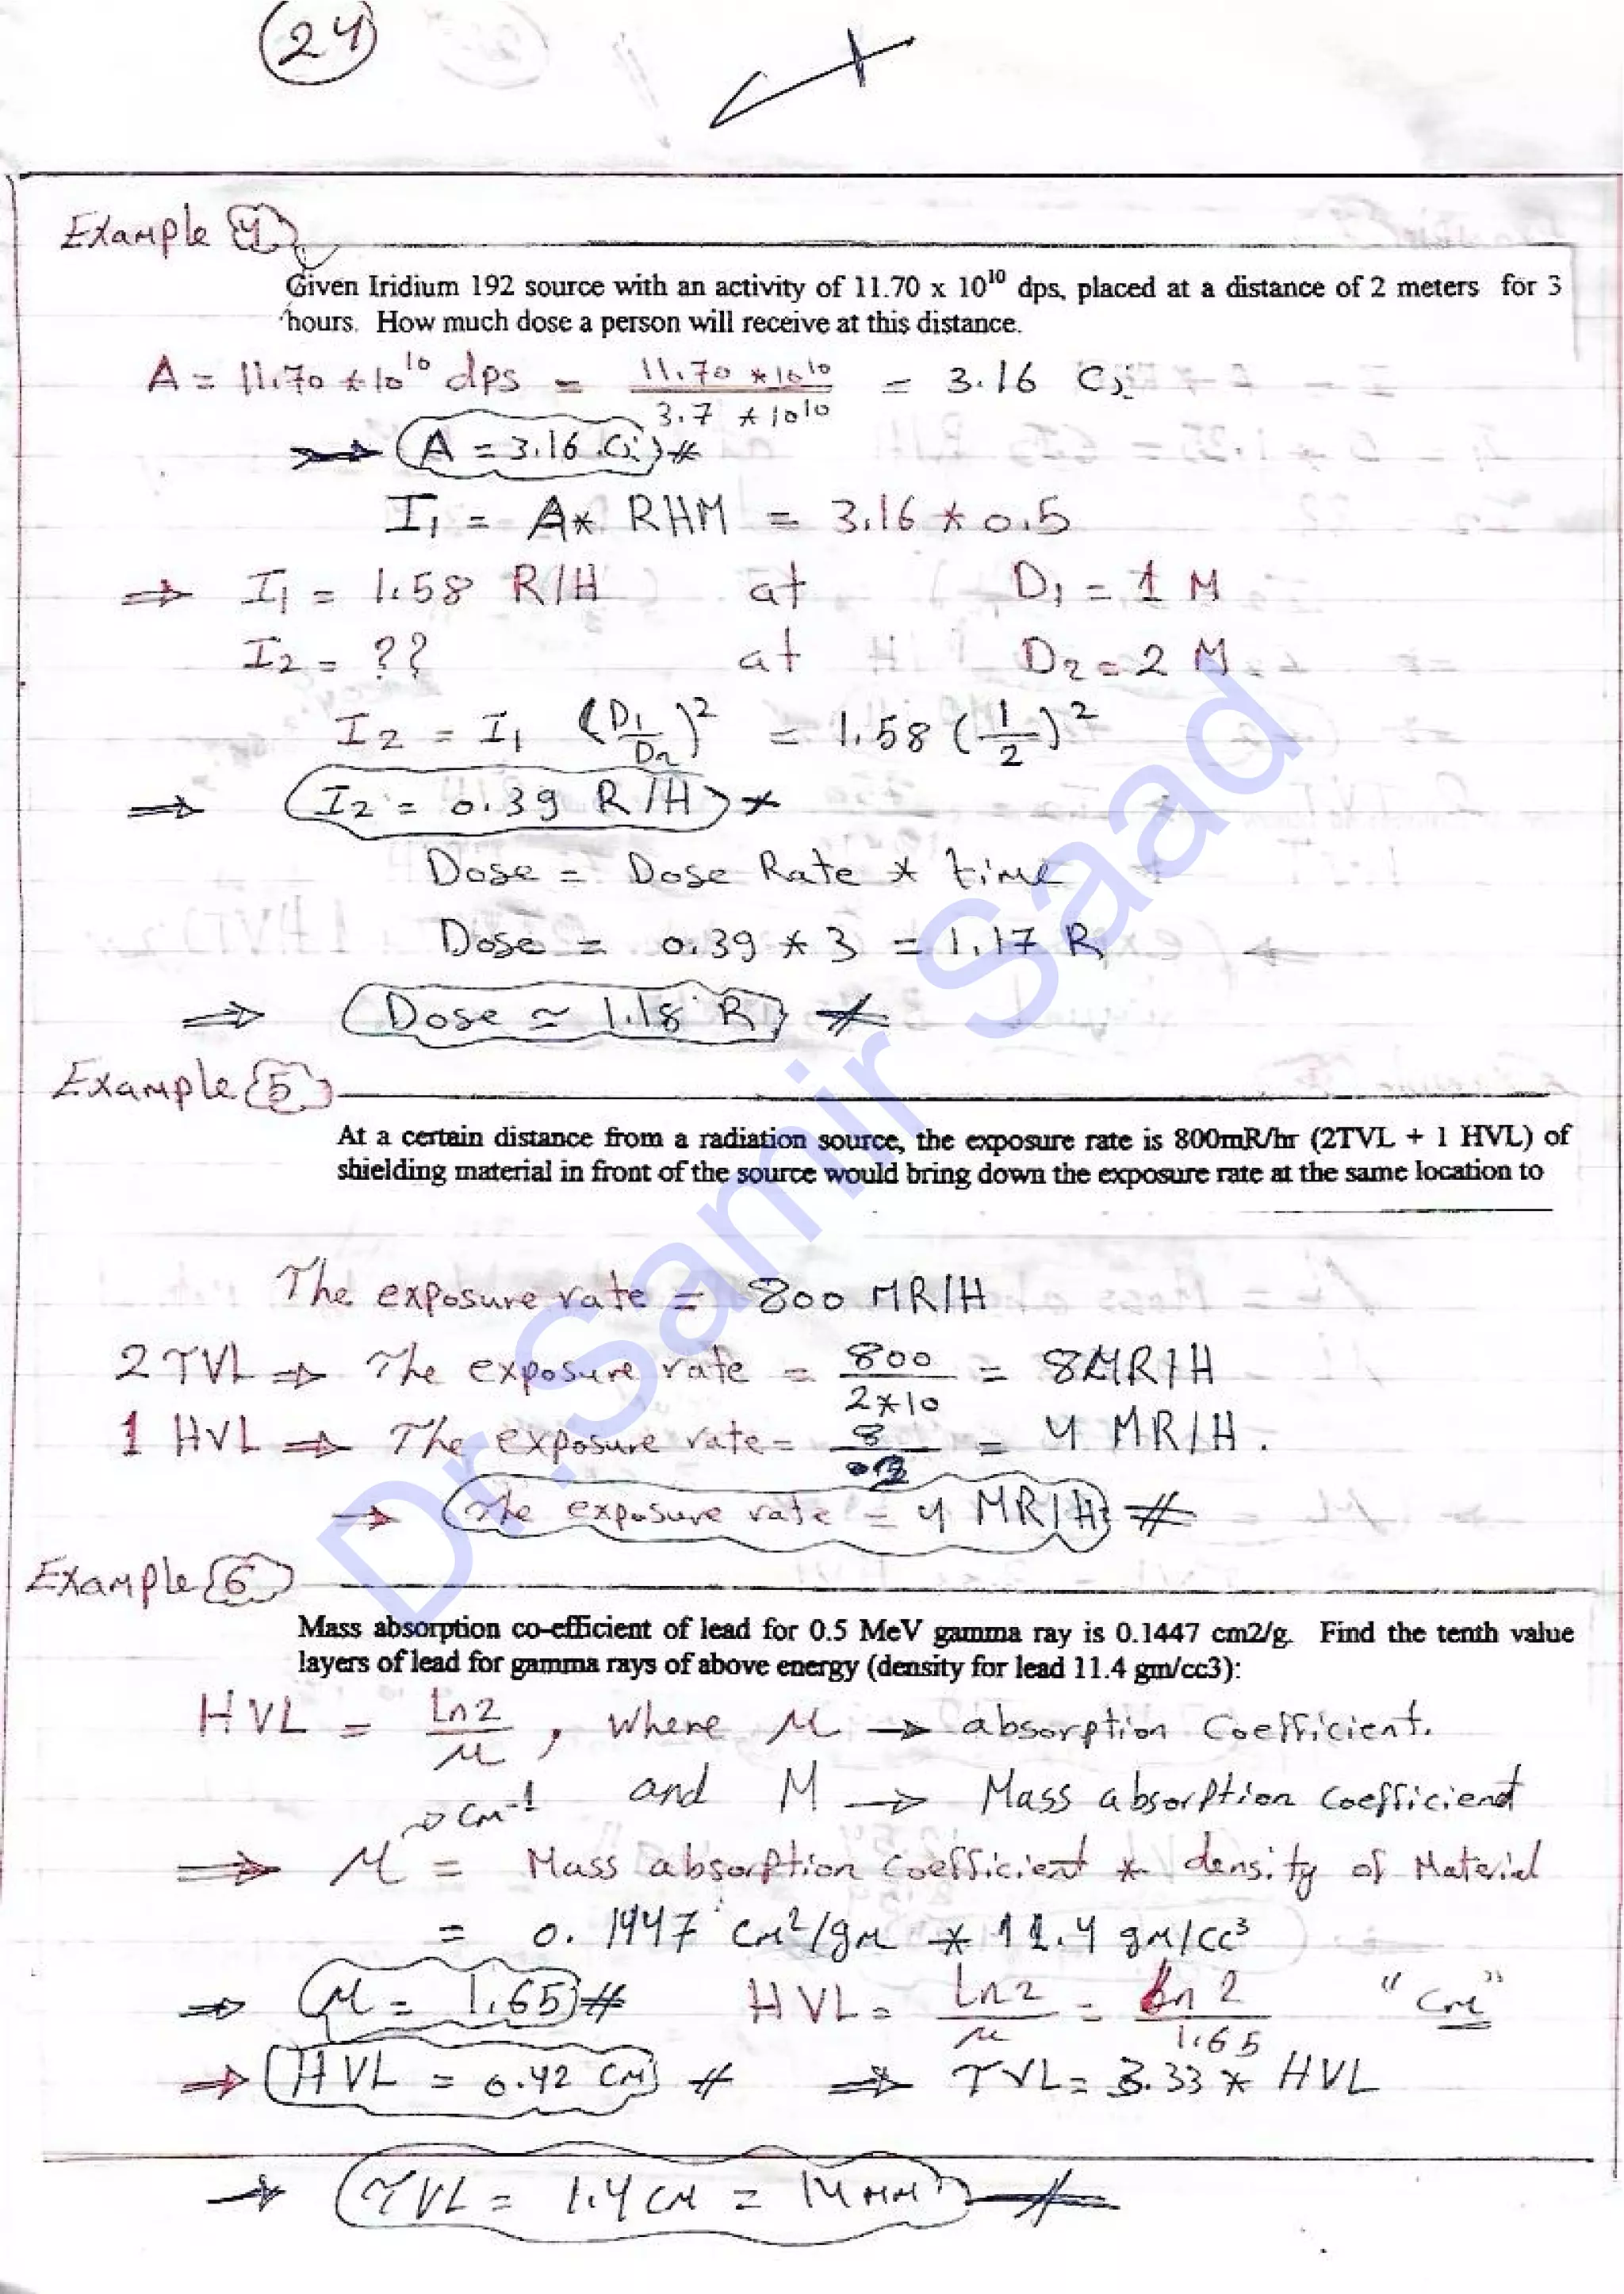 24
Example 4
Given Iridium 192 source with an activity of 11.70 x 10¹⁰ dps, placed at a distance of 2 meters for 3
hours. How much dose a person will receive at this distance.
A = 11.70 * 10¹⁰ dps = 11.70 * 10¹⁰ / 3.7 * 10¹⁰ = 3.16 Ci
A = 3.16 Ci #
I₁ = A * RHM = 3.16 * 0.5
⇒ I₁ = 1.58 R/H at D₁ = 1 M
I₂ = ?? at D₂ = 2 M
I₂ = I₁ (D₁/D₂)² = 1.58 (1/2)²
⇒ I₂ = 0.39 R/H *
Dose = Dose Rate * time
Dose = 0.39 * 3 = 1.17 R
⇒ Dose ≃ 1.18 R #
Example 5
At a certain distance from a radiation source, the exposure rate is 800mR/hr (2TVL + 1 HVL) of
shielding material in front of the source would bring down the exposure rate at the same location to
The exposure rate = 800 MR/H
2 TVL ⇒ The exposure rate = 800 / 2*10 = 8 MR/H
1 HVL ⇒ The exposure rate = 8 / 2 = 4 MR/H.
→ The exposure rate = 4 MR/H #
Example 6
Mass absorption co-efficient of lead for 0.5 MeV gamma ray is 0.1447 cm2/g. Find the tenth value
layers of lead for gamma rays of above energy (density for lead 11.4 gm/cc3):
HVL = Ln2 / μ, where μ → absorption Coefficient.
and M → Mass absorption Coefficiend
cm⁻¹
⇒ μ = Mass absorption Coefficient * density of Material
= 0.1447 cm²/gm * 11.4 gm/cc³
⇒ μ = 1.65 # HVL = Ln2 / μ = Ln 2 / 1.65 "cm"
⇒ HVL = 0.42 CM # ⇒ TVL = 3.33 * HVL
→ TVL = 1.4 CM = 14 MM #
Dr. Samir Saad